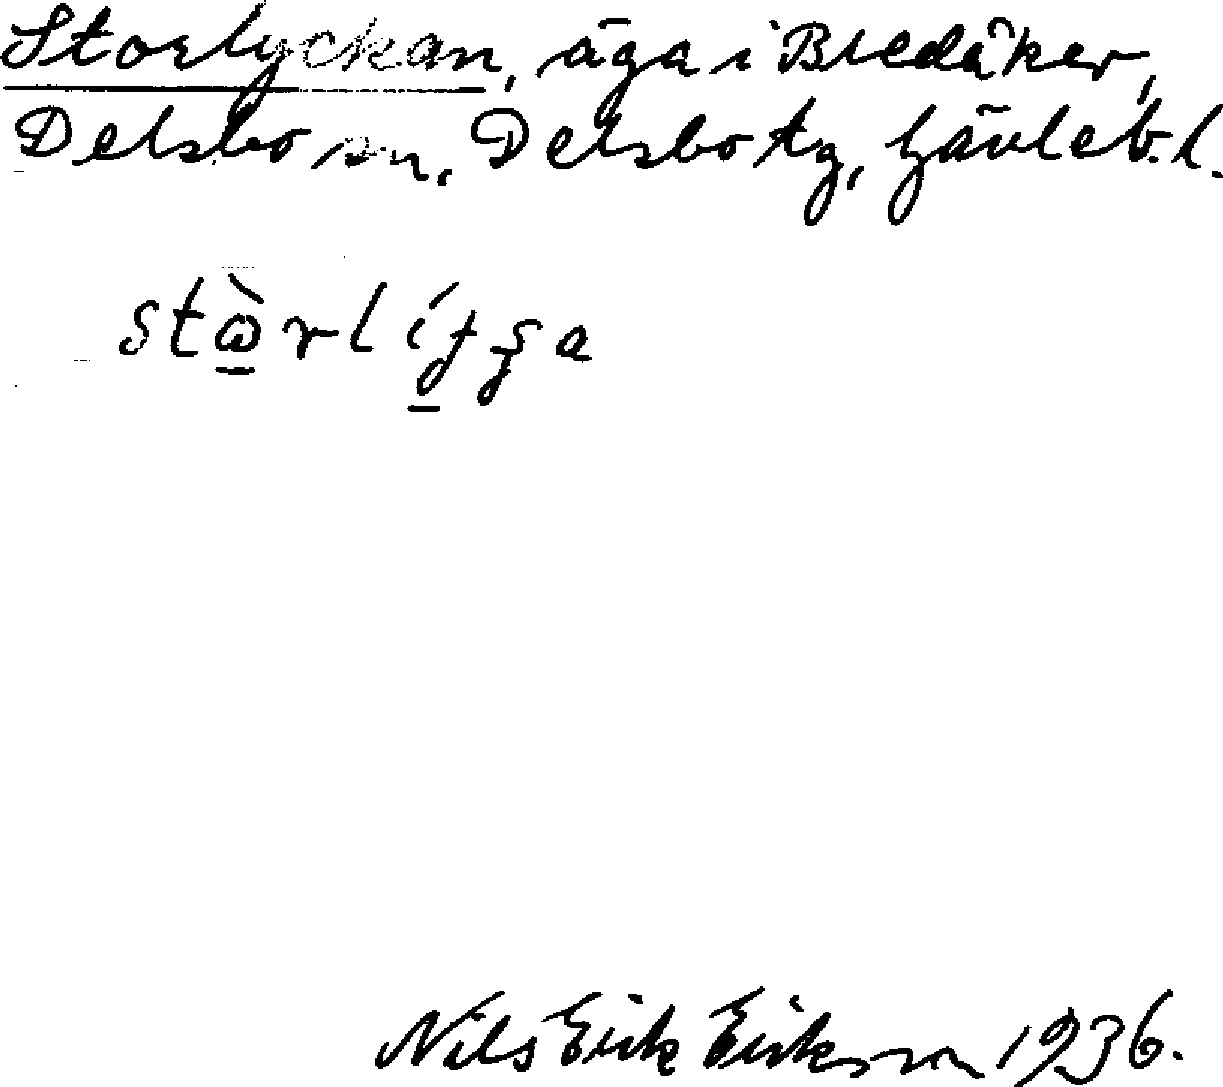 Storlyckan, äga i Bredåker,
Delsbo sn, Delsbo tg, Gävleb. l.
Nils Erik Eriksson 1936.